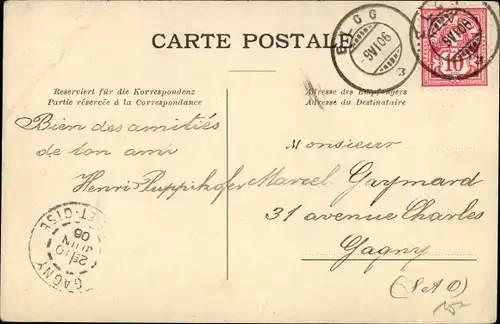 CARTE POSTALE
EGG
-9VI06
10
Reserviert für die Korrespondenz
Partie réservée à la Correspondance
Adresse des Empfängers
Adresse du Destinataire
Bien des amitiés
de ton ami
Henri Puppikofer
Monsieur
Marcel Gaymard
31 avenue Charles
Gagny
(S & O)
GAGNY
ET-OISE
JUIN
06